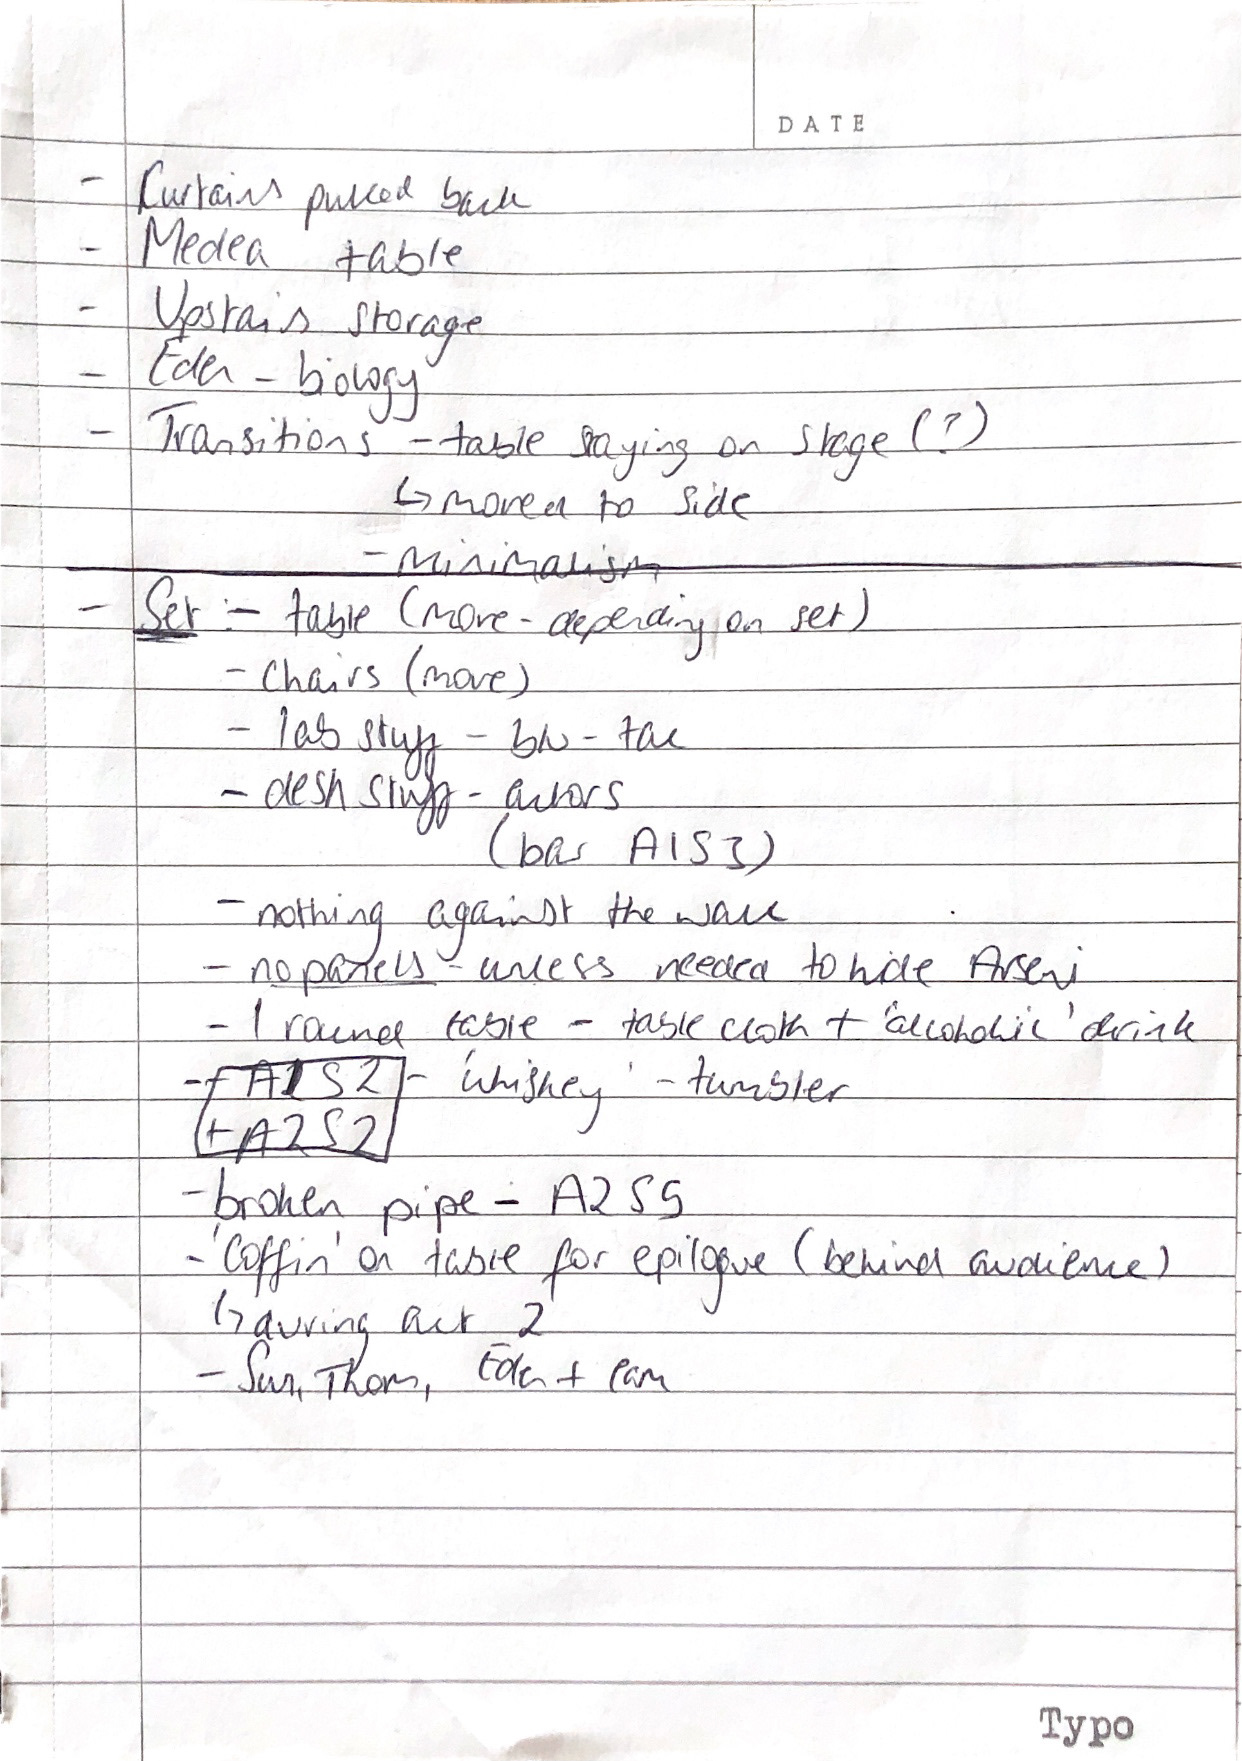 DATE
- Curtains pulled back
- Medea table
- Upstairs storage
- Eden - biology
- Transitions - table staying on stage (?)
↳ moved to side
- minimalism
- Set :- table (move - depending on set)
- Chairs (move)
- lab stuff - blu-tac
- desk stuff - actors
(bar A1S3)
- nothing against the wall
- no panels - unless needed to hide Arseni
- 1 round table - table cloth + 'alcoholic' drink
- + A1S2 - 'whiskey' - tumbler
+ A2S2
- broken pipe - A2S5
- 'Coffin' on table for epilogue (behind audience)
↳ during act 2
- Thom, Eden +
Typo